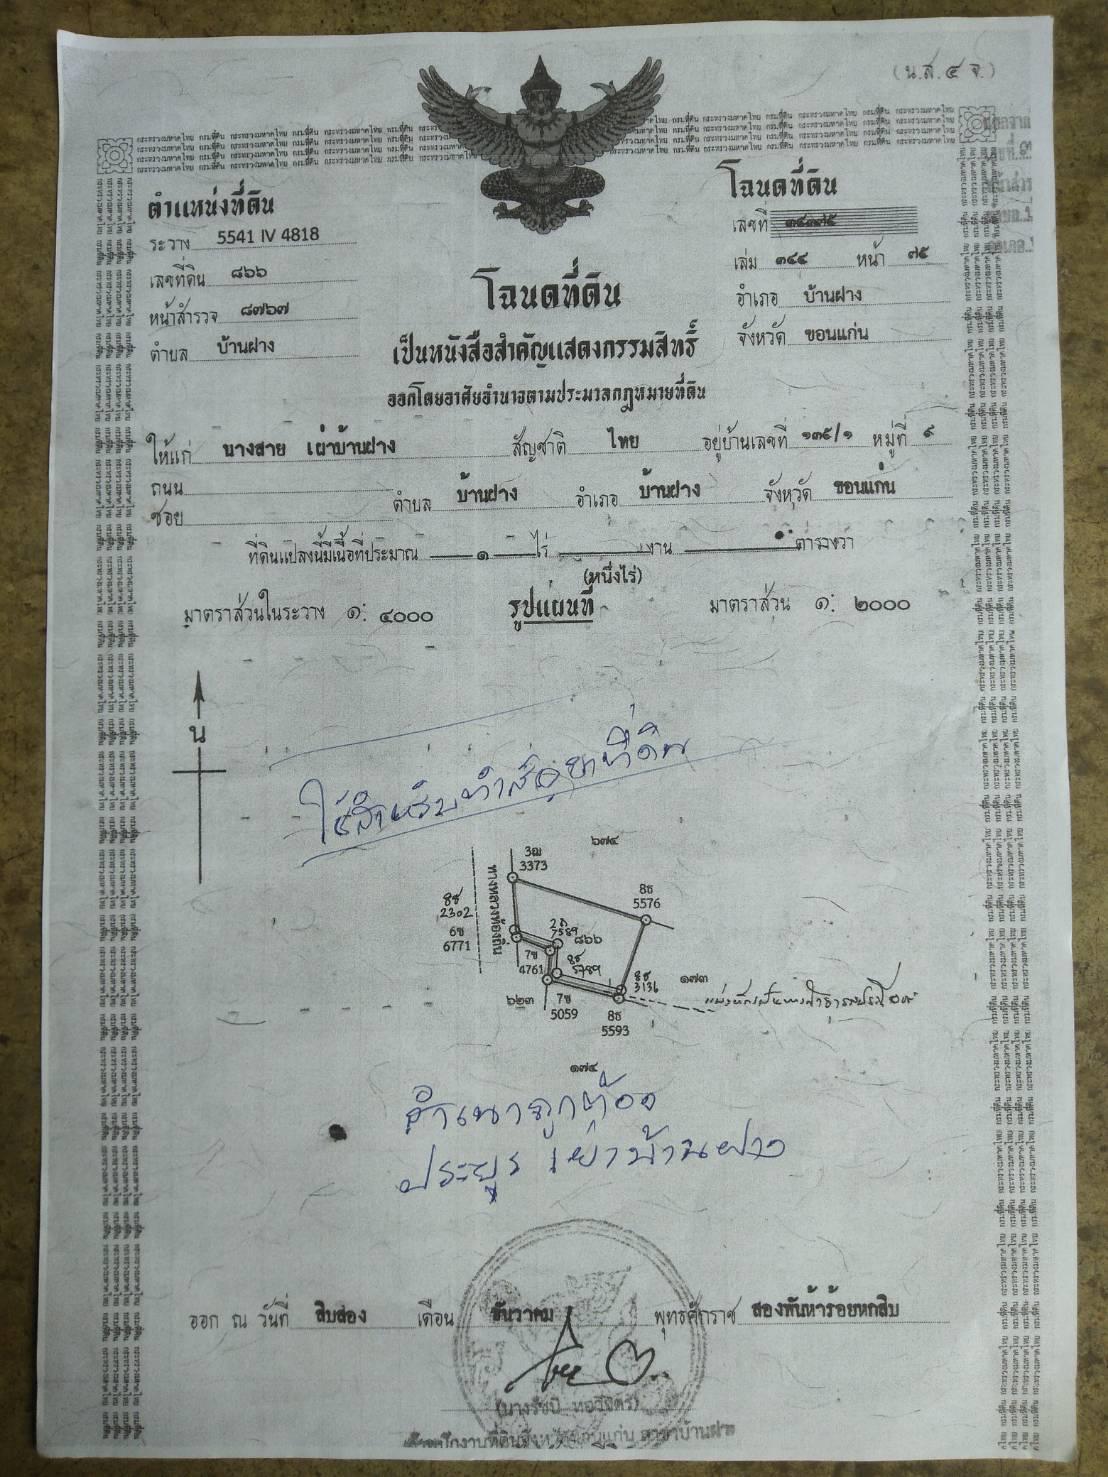 (น.ส.๔ จ.)
ตำแหน่งที่ดิน
ระวาง 5541 IV 4818
เลขที่ดิน ๘๖๖
หน้าสำรวจ ๘๗๖๗
ตำบล บ้านฝาง
โฉนดที่ดิน
เลขที่ ๓๔๓๗๕
เล่ม ๓๔๔ หน้า ๗๕
อำเภอ บ้านฝาง
จังหวัด ขอนแก่น
โฉนดที่ดิน
เป็นหนังสือสำคัญแสดงกรรมสิทธิ์
ออกโดยอาศัยอำนาจตามประมวลกฎหมายที่ดิน
ให้แก่ นางสาย เผ่าบ้านฝาง สัญชาติ ไทย อยู่บ้านเลขที่ ๑๓๕/๑ หมู่ที่ ๙
ถนน
ซอย ตำบล บ้านฝาง อำเภอ บ้านฝาง จังหวัด ขอนแก่น
ที่ดินแปลงนี้มีเนื้อที่ประมาณ ๑ ไร่ งาน ตารางวา
(หนึ่งไร่)
มาตราส่วนในระวาง ๑: ๔๐๐๐ รูปแผนที่ มาตราส่วน ๑: ๒๐๐๐
น
ใช้สำหรับทำสัญญาที่ดิน
๖๗๔
3ฌ
3373
8ธ
5576
ทางหลวงท้องถิ่น
8ช
2302
6ช
6771
7589
๘๖๖
7ช
4761
8ช
5789
8ช
3136
๑๗๓
๖๒๓
7ช
5059
8ธ
5593
๑๗๔
สำเนาถูกต้อง
ประยูร เผ่าบ้านฝาง
ออก ณ วันที่ สิบสอง เดือน ธันวาคม พุทธศักราช สองพันห้าร้อยหกสิบ